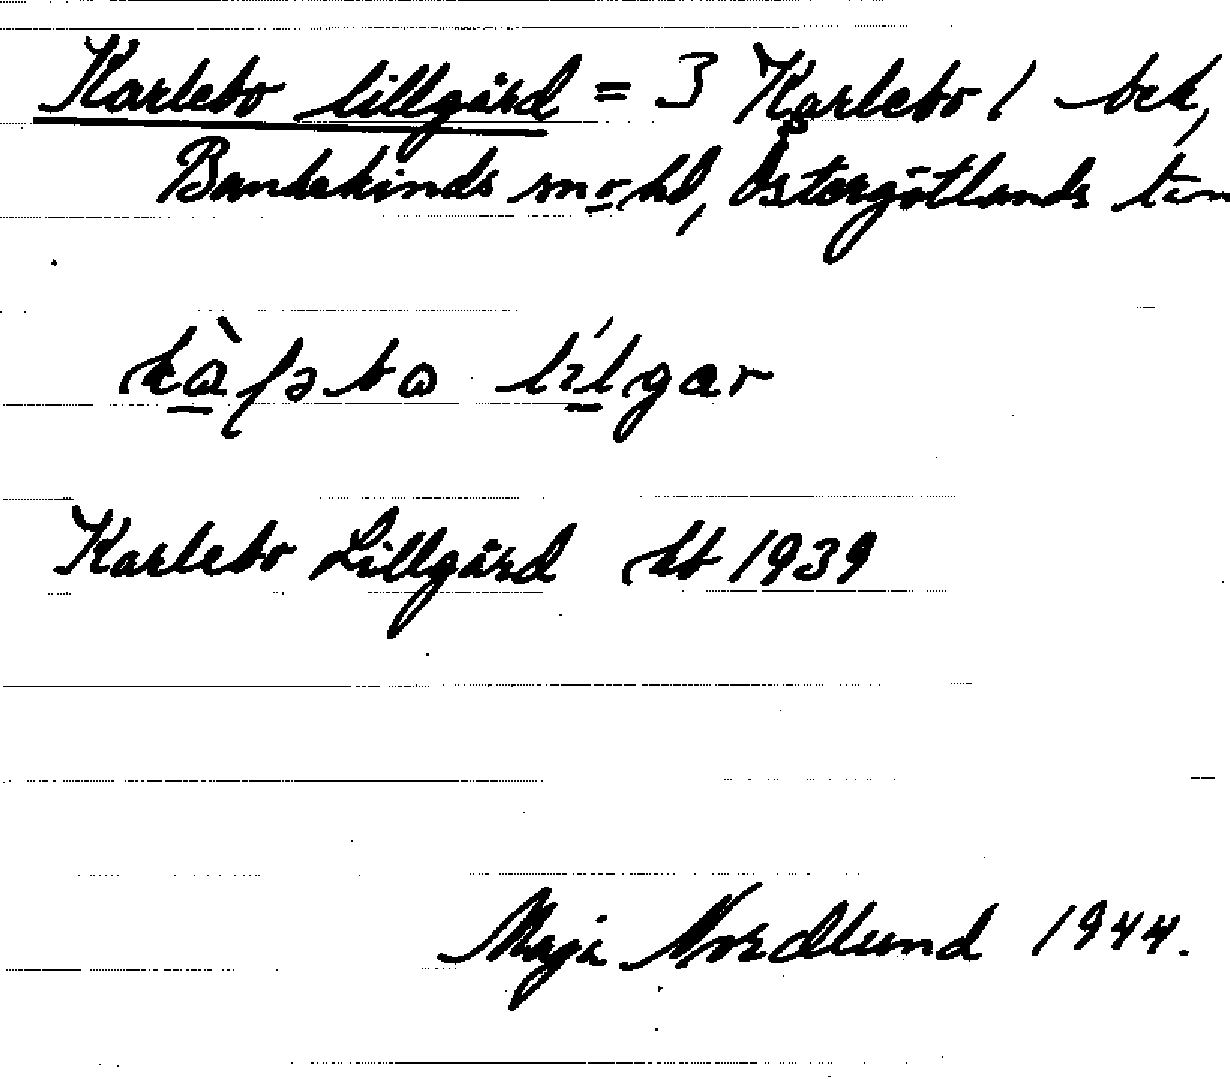 Karlebo lillgård = 3 Karlebo / bek,
Bankekinds sn o hd, Östergötlands län
Karlebo Lillgård kb 1939
Maja Nordlund 1944.